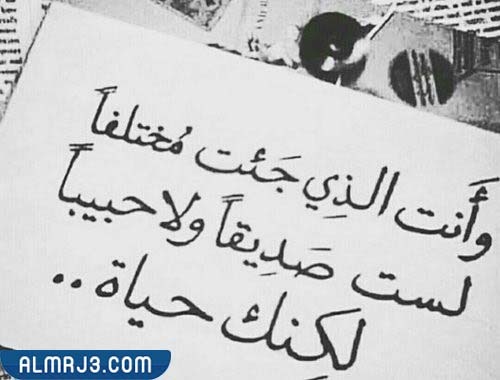 وَأَنت الذِي جَئت مُختلفاً
لست صَدِيقاً ولا حبيباً
لكِنك حياة ..
ALMRJ3.COM